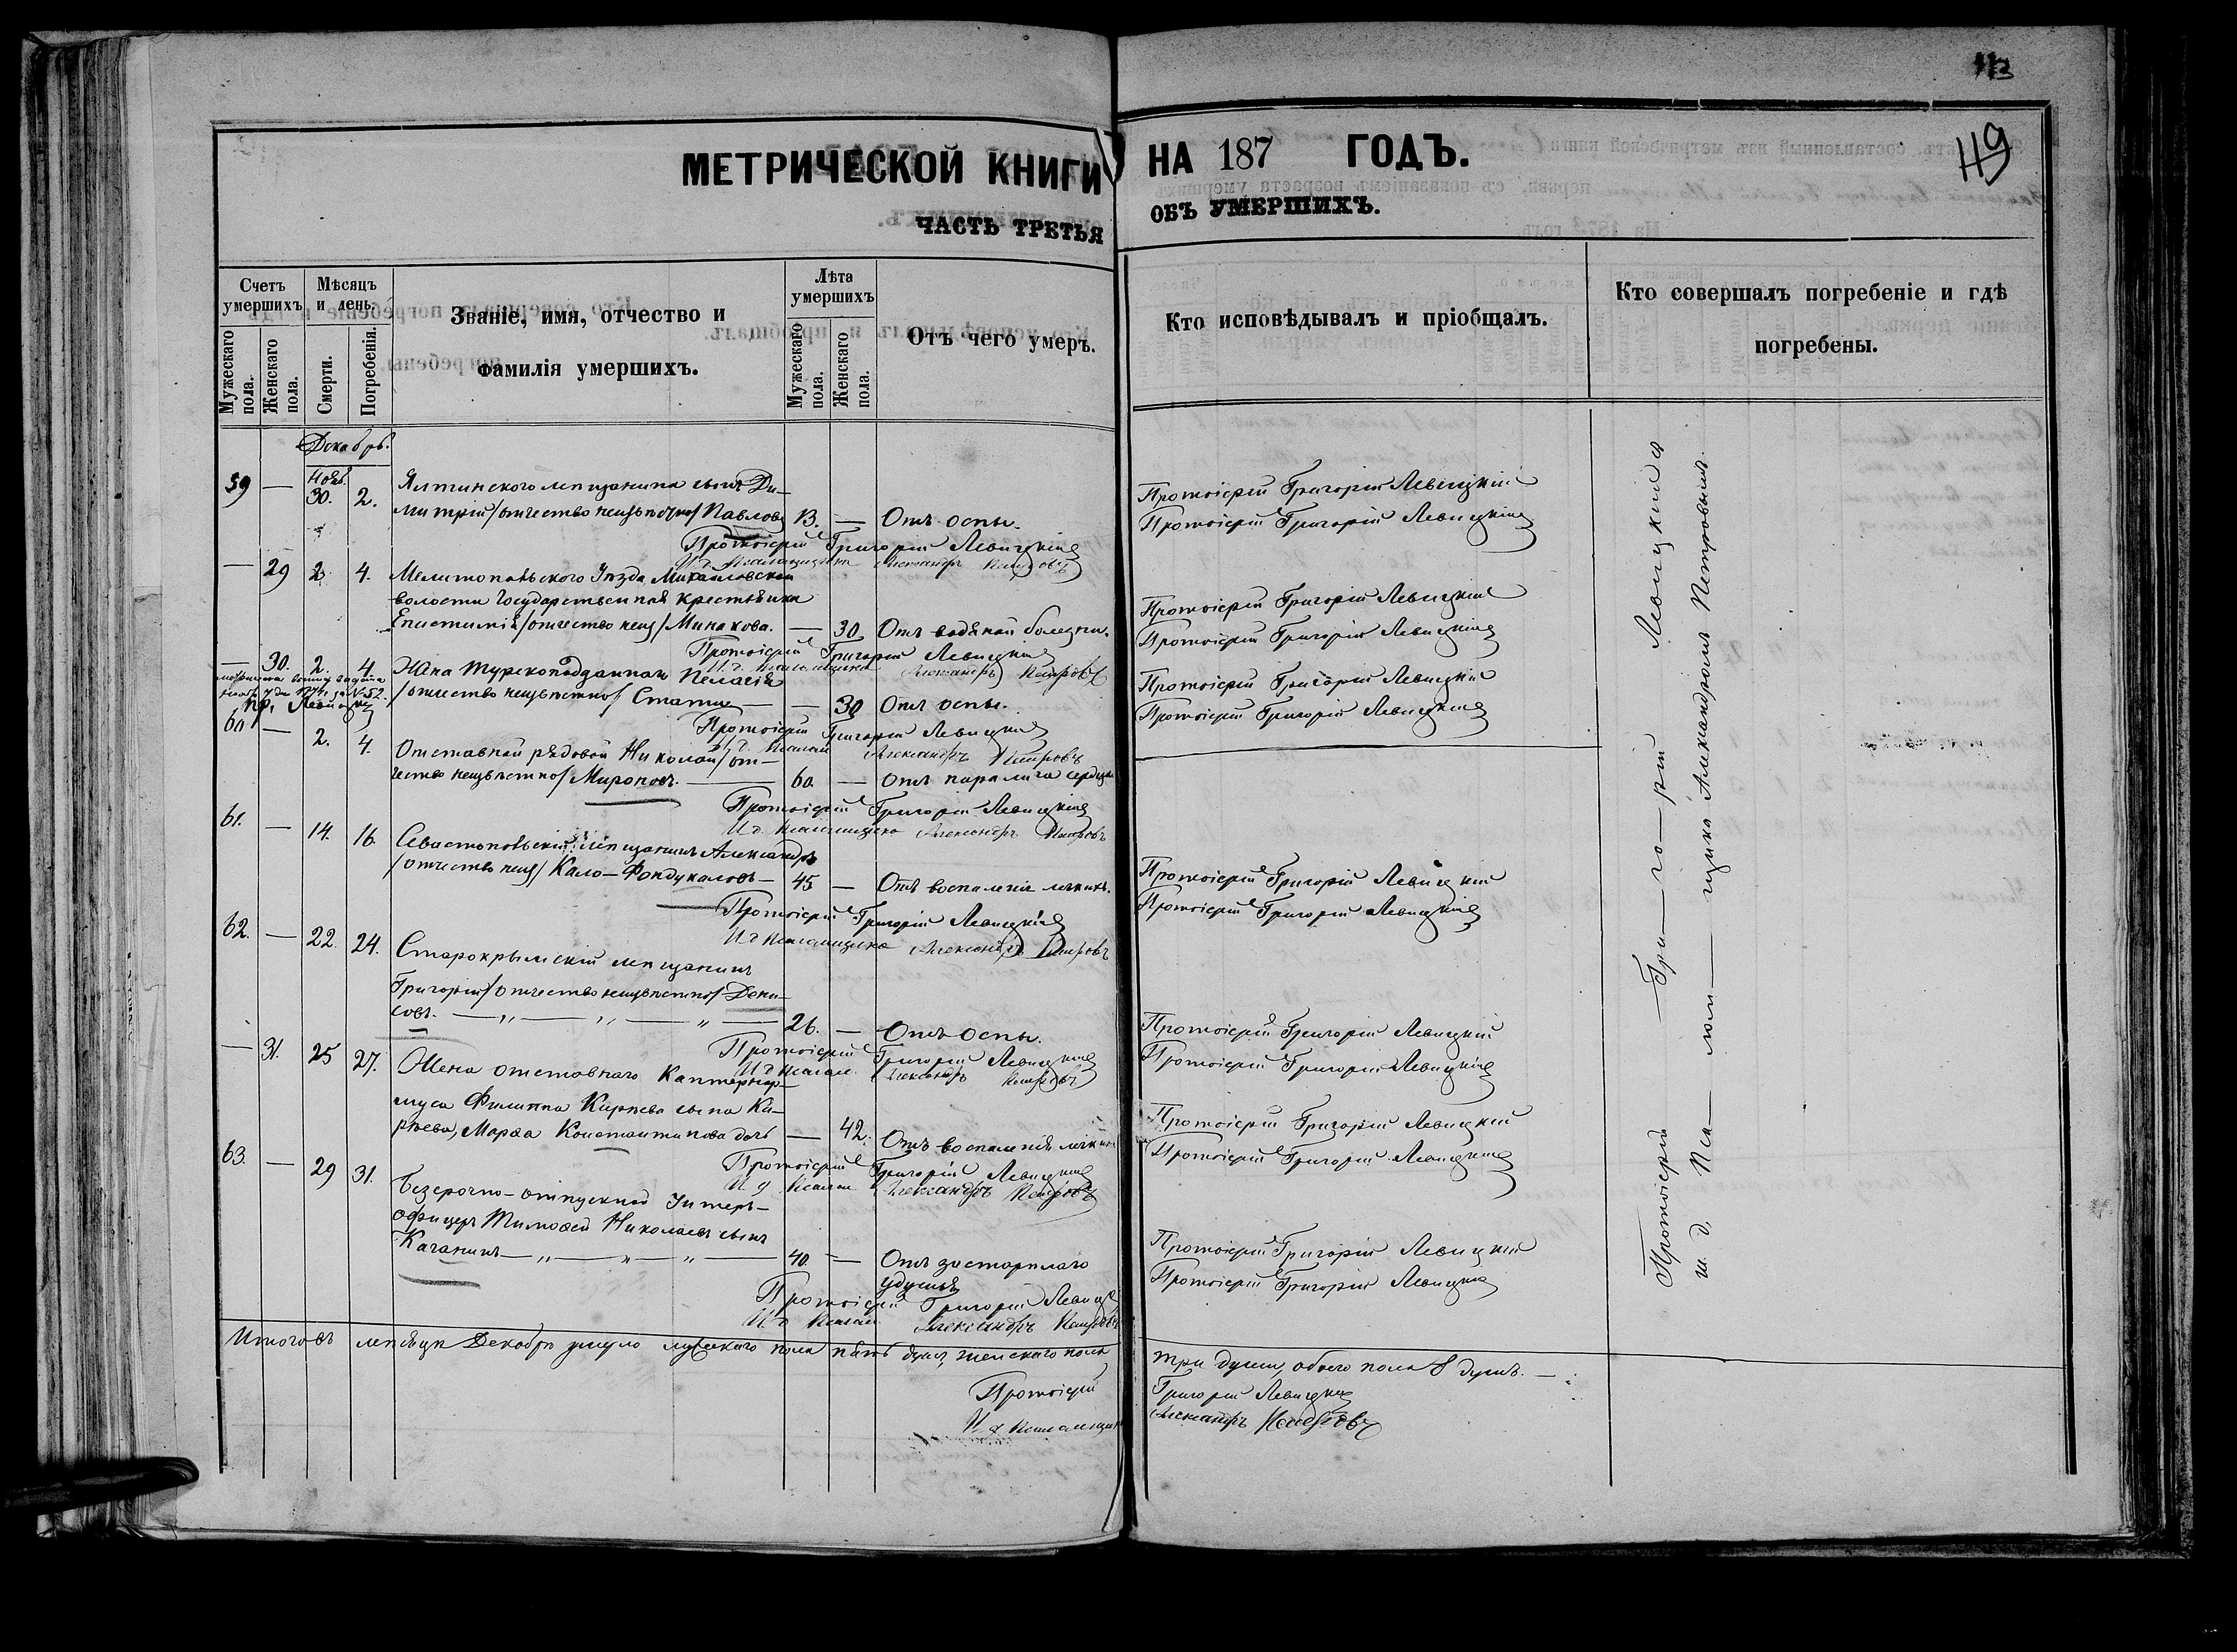 МЕТРИЧЕСКОЙ КНИГИ
НА 187 ГОДЪ.
ЧАСТЬ ТРЕТЬЯ
ОБЪ УМЕРШИХЪ.
119
Счетъ умершихъ
Мужескаго пола.
Женскаго пола.
Мѣсяцъ и день.
Смерти.
Погребенія.
Званіе, имя, отчество и
фамилія умершихъ.
Лѣта умершихъ
Мужескаго пола.
Женскаго пола.
Отъ чего умеръ.
Кто исповѣдывалъ и пріобщалъ.
Кто совершалъ погребеніе и гдѣ
погребены.
Декабрь.
59 — Нояб. 30. 2. Ялтинского мѣщанина сынъ Ди-
митрій /отчество неизвѣстно/ Павловъ 13. — Отъ оспы.
Протоіерей Григорій Левицкій
И. д. Псаломщика Александръ Петровъ
Протоіерей Григорій Левицкій
Протоіерей Григорій Левицкій
— 29 2. 4. Мелитопольского Уѣзда Михайловской
волости Государственная крестьянка
Епистимія /отчество неиз/ Минакова. — 30 Отъ водяной болезни.
Протоіерей Григорій Левицкій
И. д. Псаломщика Александръ Петровъ
Протоіерей Григорій Левицкій
Протоіерей Григорій Левицкій
— 30. 2. 4. Жена Турскоподданнаго Пелагія
/отчество неизвѣстно/ — 30 Отъ оспы.
№ 52.
Пр. Левицкій
Протоіерей Григорій Левицкій
И. д. Псалом Александръ Петровъ
Протоіерей Григорій Левицкій
Протоіерей Григорій Левицкій
60 — 2. 4. Отставной рядовой Николай /от-
чество неизвѣстно/ Мироновъ. — 60. — Отъ паралича сердца
Протоіерей Григорій Левицкій
И. д. Псаломщика Александръ Петровъ
61. — 14. 16. Севастопольскій мѣщанинъ Александръ
/отчество неиз/ Кало-Фондукаловъ — 45 — Отъ воспаленія легкихъ.
Протоіерей Григорій Левицкій
И. д. Псаломщика Александръ Петровъ
Протоіерей Григорій Левицкій
Протоіерей Григорій Левицкій
62. — 22. 24. Старокрымскій мѣщанинъ
Григорій /отчество неизвѣстно/ Дени-
совъ. — „ — „ — „ — 26. — Отъ оспы.
Протоіерей Григорій Левицкій
И. д. Псалом. Александръ Петровъ
Протоіерей Григорій Левицкій
Протоіерей Григорій Левицкій
— 31. 25 27. Жена отставнаго Каптернар-
муса Филиппа Кирѣева сына Ки-
рѣева, Марѳа Константинова дочь — 42. Отъ воспаленія легкихъ
Протоіерей Григорій Левицкій
И. д. Псалом Александръ Петровъ
Протоіерей Григорій Левицкій
Протоіерей Григорій Левицкій
63. — 29 31. Безсрочно-отпускной Унтеръ-
офицеръ Тимоѳей Николаевъ сынъ
Качанинъ — „ — „ — „ — 40. — Отъ застарѣлаго
удушья
Протоіерей Григорій Левицкій
И. д. Псалом Александръ Петровъ
Протоіерей Григорій Левицкій
Протоіерей Григорій Левицкій
Протоіерей Гри-го-рій Левицкій
и. д. Пса-лом-щика Александромъ Петровымъ.
Итого въ мѣсяцѣ Декабрѣ умерло мужескаго пола пять душъ, женскаго пола
три души, обоего пола 8 душъ. —
Протоіерей Григорій Левицкій
И. д. Псаломщика Александръ Петровъ